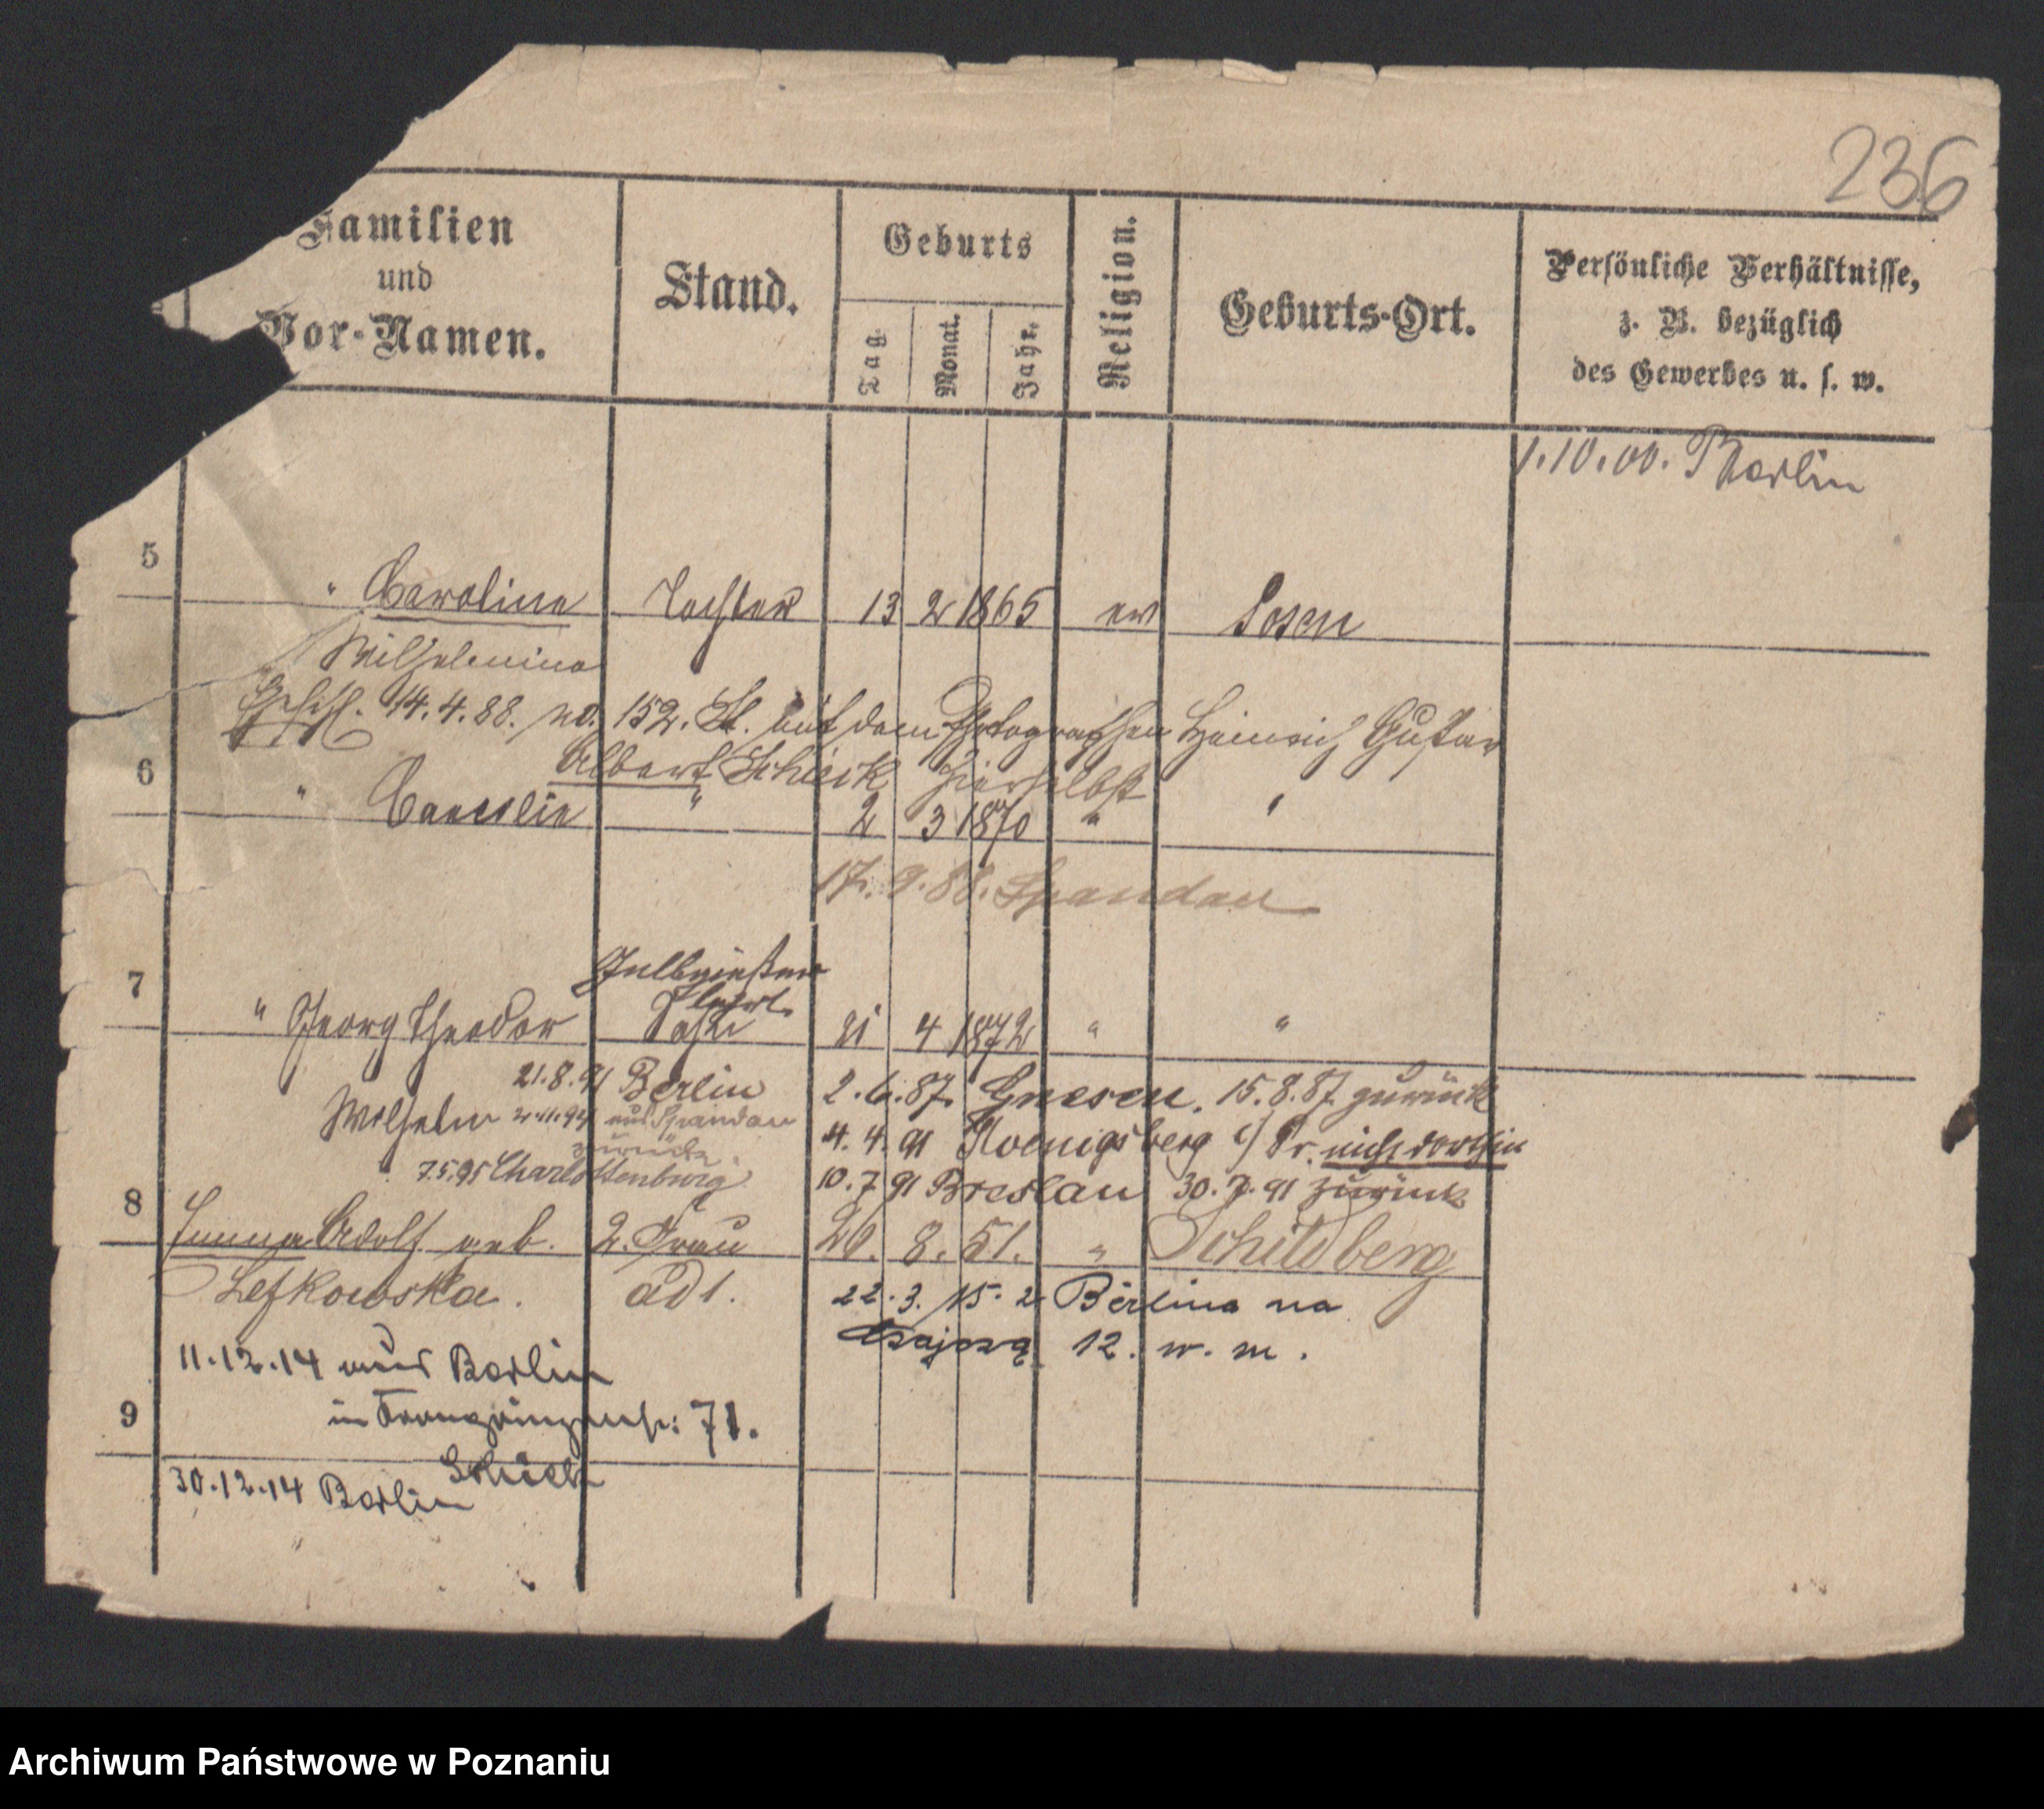 236
Familien
und
Vor-Namen.
Stand.
Geburts
Tag.
Monat.
Jahr.
Religion.
Geburts-Ort.
Persönliche Verhältnisse,
z. B. bezüglich
des Gewerbes u. s. w.
1.10.00. Berlin
5
" Caroline Tochter 13 2 1865 ev Posen
Wilhelmine
14.4.88. no. 152. St. mit dem Photographen Heinrich Gustav
Albert Schieck hierselbst
6
" " 2 3 1870 " "
17.9.88. Spandau
Gelbgießer
7
Lehrl.
" Georg Theodor Sohn 21 4 1872 " "
21.8.91 Berlin 2.6.87. Gnesen. 15.8.87. zurück
Wilhelm 2.11.94 aus Spandau
zurück.
4.4.91 Koenigsberg i/Pr. nicht dorthin
7.5.95 Charlottenburg 10.7.91 Breslau 30.7.91 zurück
8
Emma Adolf geb. 2. Frau 20. 8. 51. " Schildberg
Lefkowska. ad 1.
22.3.15. z Berlina na
12. w. m.
11.12.14 aus Berlin
9
in 71.
Schieck
30.12.14 Berlin
Archiwum Państwowe w Poznaniu